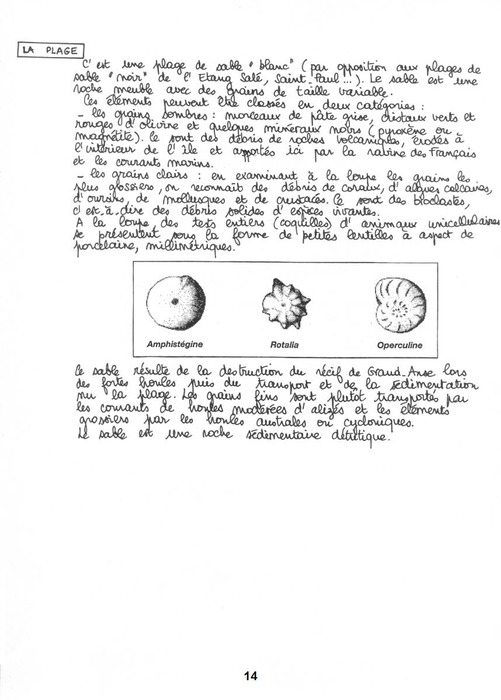 LA PLAGE
C'est une plage de sable "blanc" (par opposition aux plages de
sable "noir" de l'Etang Salé, Saint-Paul...). Le sable est une
roche meuble avec des grains de taille variable.
Ces éléments peuvent être classés en deux catégories :
- les grains sombres : morceaux de pâte grise, cristaux verts et
rouges d'olivine et quelques minéraux noirs (pyroxène ou
magnétite). Ce sont des débris de roches volcaniques, érodés à
l'intérieur de l'île et apportés ici par la ravine des Français
et les courants marins.
- les grains clairs : en examinant à la loupe les grains les
plus grossiers, on reconnaît des débris de coraux, d'algues calcaires,
d'oursins, de mollusques et de crustacés. Ce sont des bioclastes,
c'est-à-dire des débris solides d'espèces vivantes.
A la loupe, des tests entiers (coquilles) d'animaux unicellulaires
se présentent sous la forme de petites lentilles à aspect de
porcelaine, millimétriques.
Amphistégine Rotalia Operculine
Ce sable résulte de la destruction du récif de Grand-Anse lors
des fortes houles puis du transport et de la sédimentation
sur la plage. Les grains fins sont plutôt transportés par
les courants de houles modérées d'alizés et les éléments
grossiers par les houles australes ou cycloniques.
Le sable est une roche sédimentaire détritique.
14